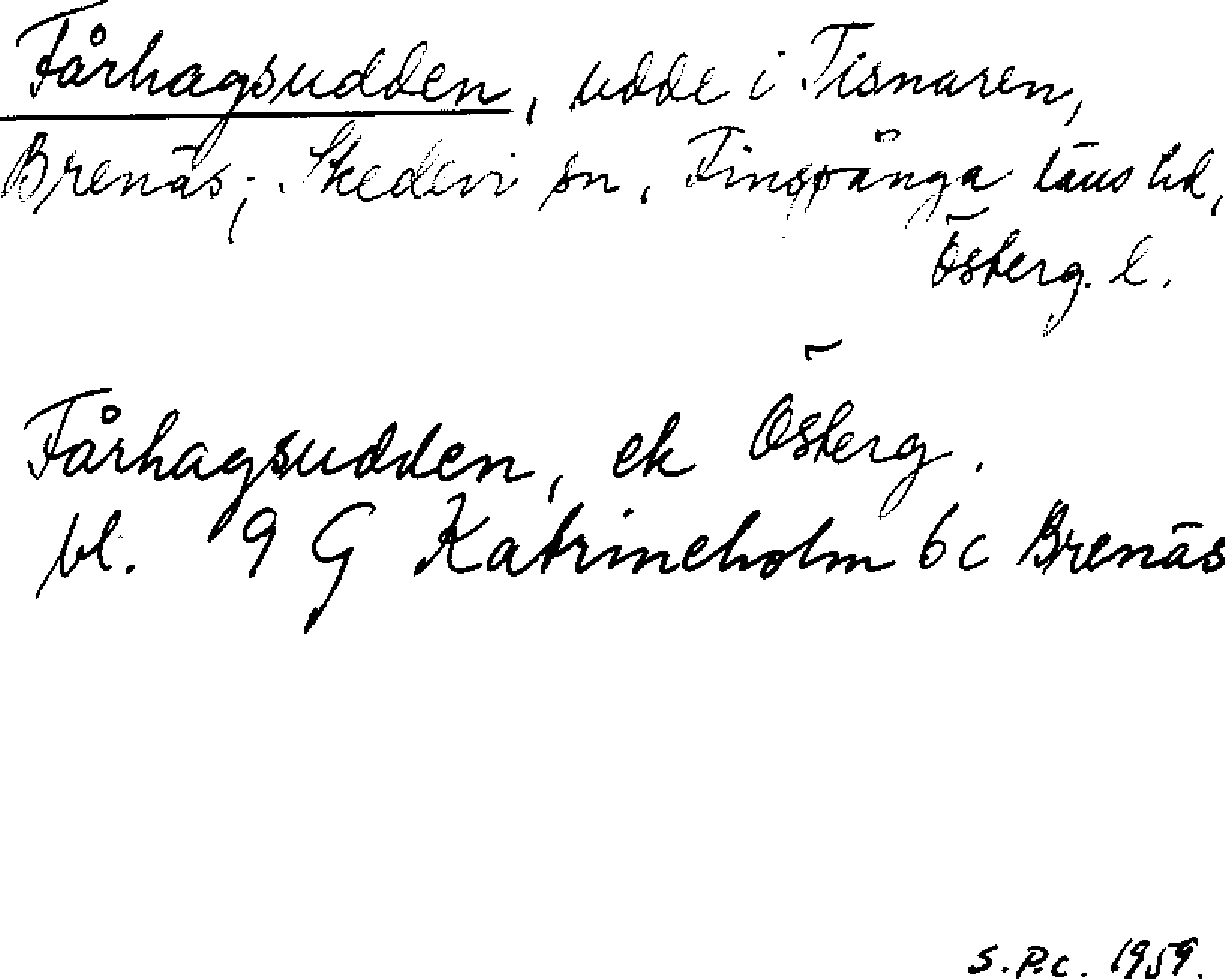 Fårhagsudden, udde i Tisnaren,
Brenäs; Skedevi sn, Finspånga läns hd,
Österg. l.
Fårhagsudden, ek Österg.
bl. 9 G Katrineholm 6c Brenäs
S.P.C. 1959.